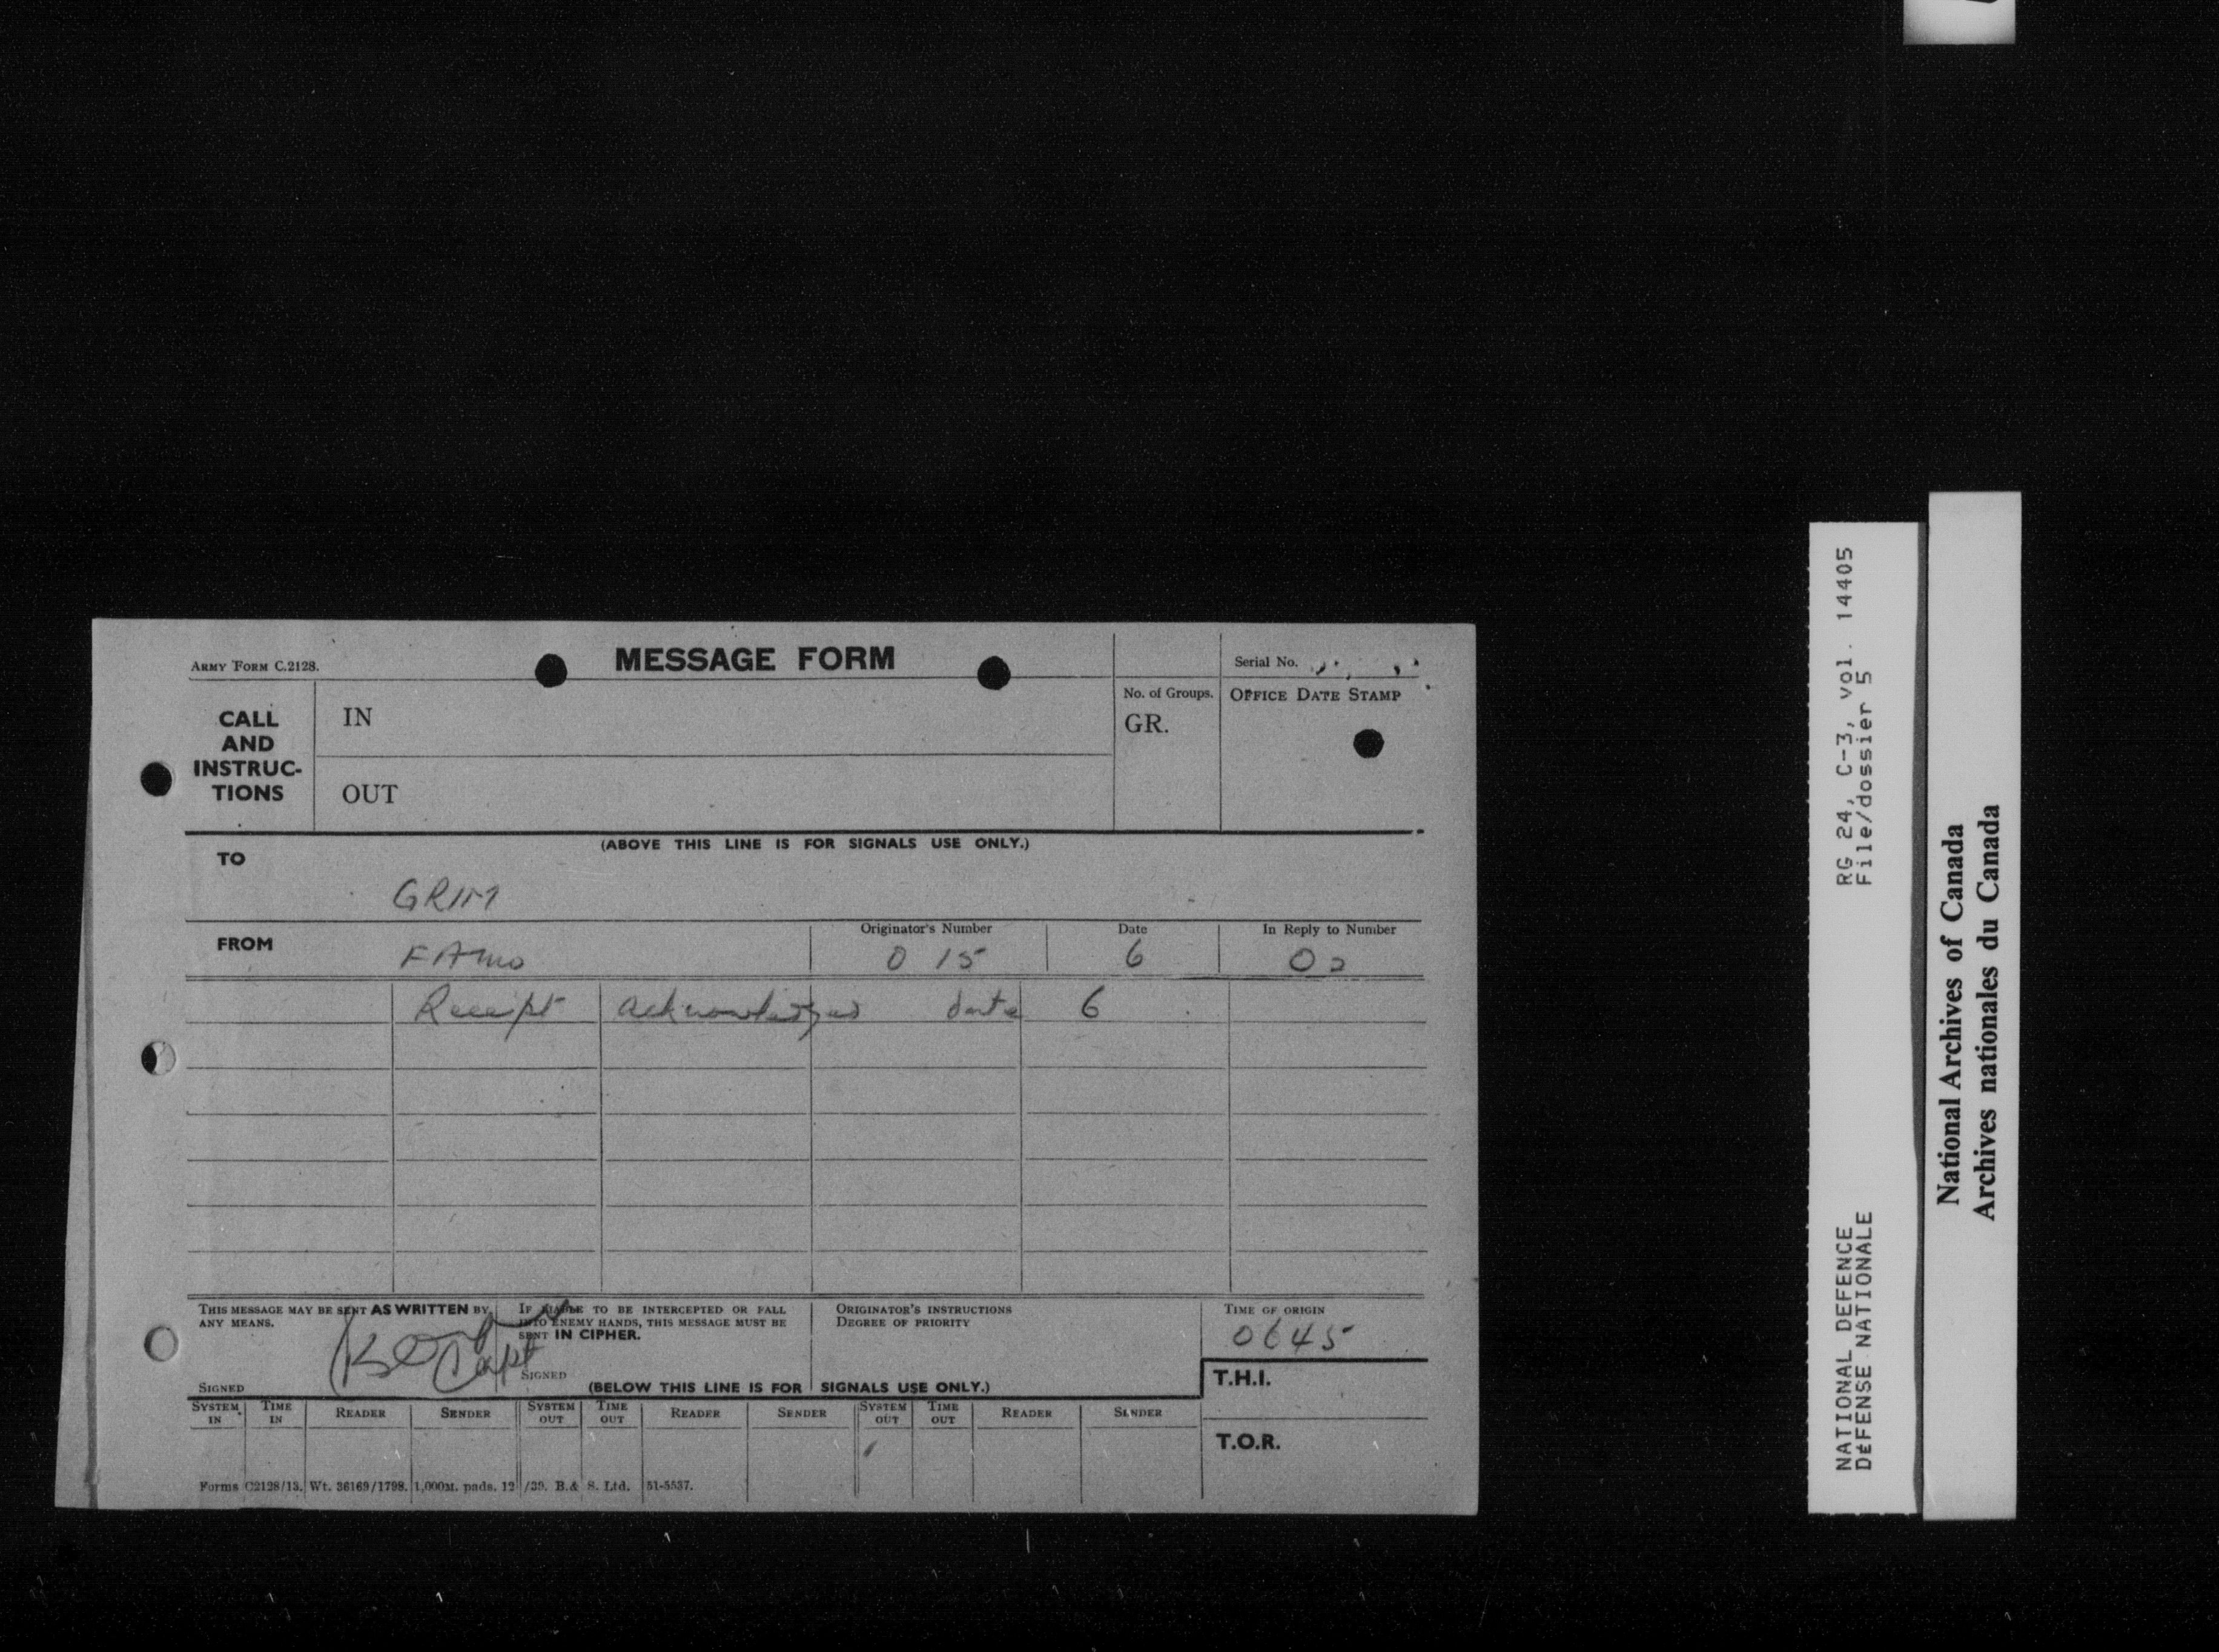 ARMY FORM C.2128.
MESSAGE FORM
Serial No.
CALL AND INSTRUC-TIONS
IN
OUT
No. of Groups.
GR.
OFFICE DATE STAMP
(ABOVE THIS LINE IS FOR SIGNALS USE ONLY.)
TO
GRIM
FROM
Originator's Number
Date
In Reply to Number
O 15
6
Receipt acknowledged date 6
THIS MESSAGE MAY BE SENT AS WRITTEN BY
ANY MEANS.
SIGNED
Capt
IF LIABLE TO BE INTERCEPTED OR FALL
INTO ENEMY HANDS, THIS MESSAGE MUST BE
SENT IN CIPHER.
SIGNED
ORIGINATOR'S INSTRUCTIONS
DEGREE OF PRIORITY
TIME OF ORIGIN
0645
(BELOW THIS LINE IS FOR SIGNALS USE ONLY.)
T.H.I.
T.O.R.
SYSTEM IN TIME IN READER SENDER SYSTEM OUT TIME OUT READER SENDER SYSTEM OUT TIME OUT READER SENDER
Forms C2128/13. Wt. 36169/1798. 1,000M. pads. 12/39. B.& S. Ltd. 51-5537.
RG 24, C-3, vol. 14405
File/dossier 5
NATIONAL DEFENCE
DÉFENSE NATIONALE
National Archives of Canada
Archives nationales du Canada